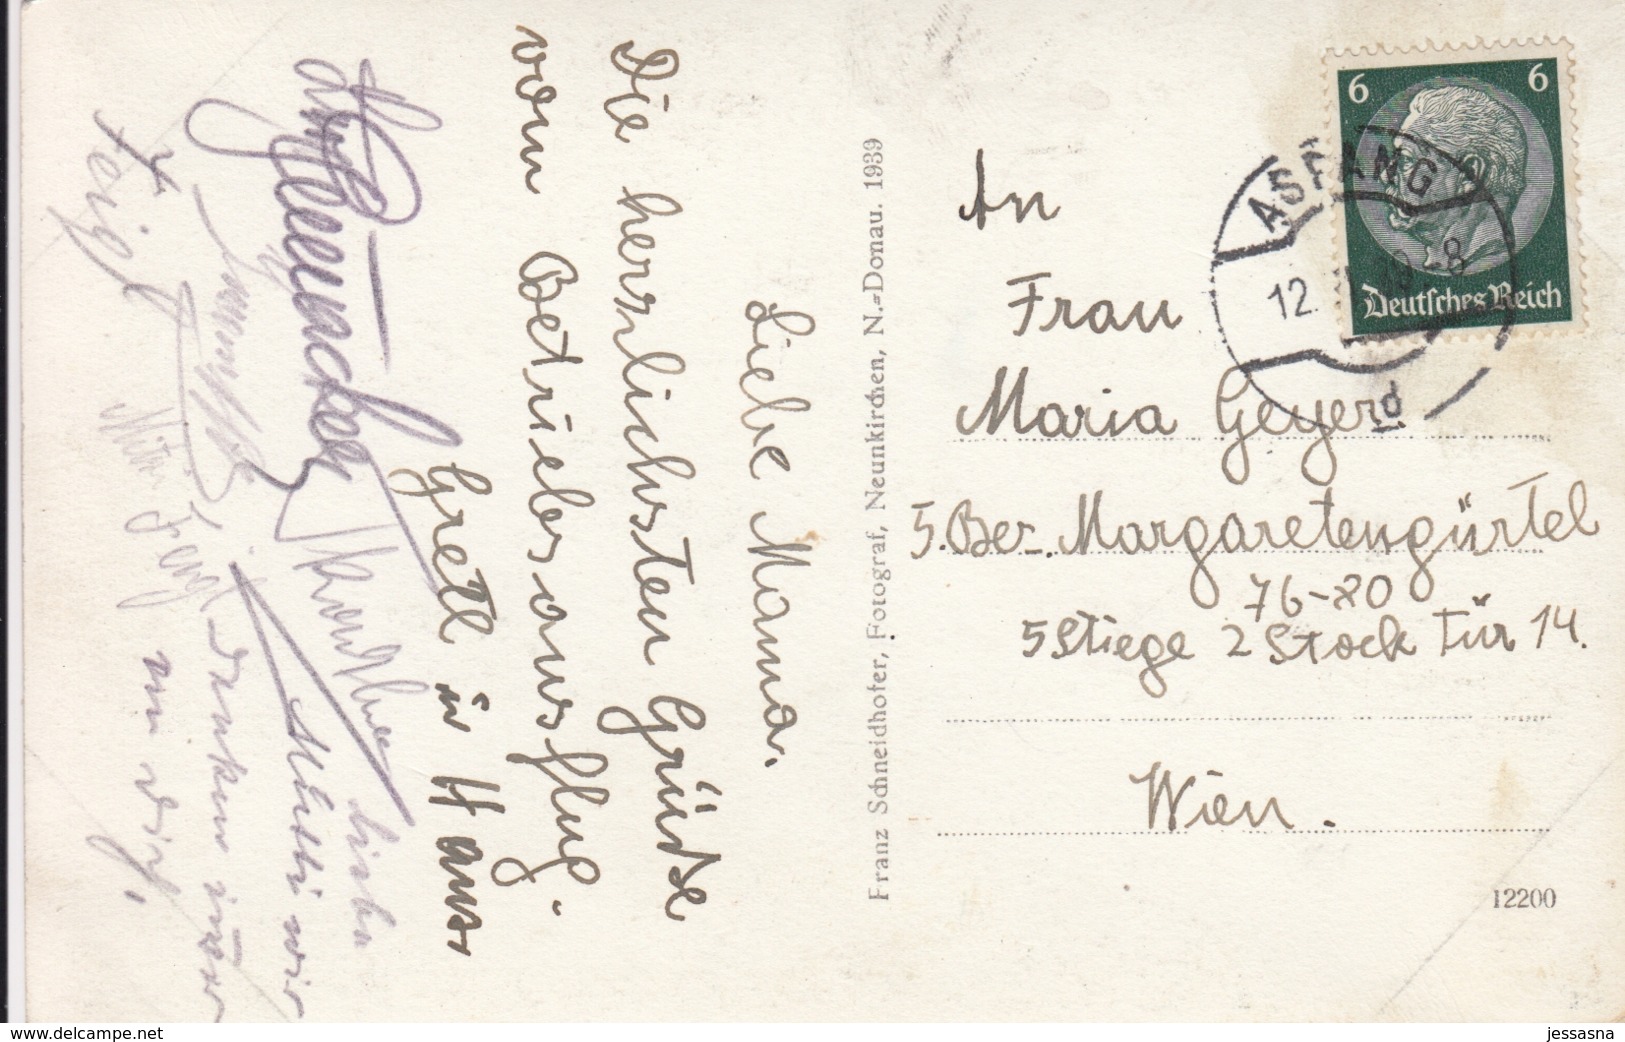 Liebe Mama.
Die herzlichsten Grüße
vom Betriebsausflug.
Gretl u Hans
Liebe
Mutti wir
denken immer
an dich,
Franz Schneidhofer, Fotograf, Neunkirchen, N.=Donau. 1939
6 6
Deutsches Reich
ASPANG
12. -8
d
An
Frau
Maria Geyer
5. Bez. Margaretengürtel
76-80
5 Stiege 2 Stock Tür 14.
Wien.
12200
www.delcampe.net
jessasna